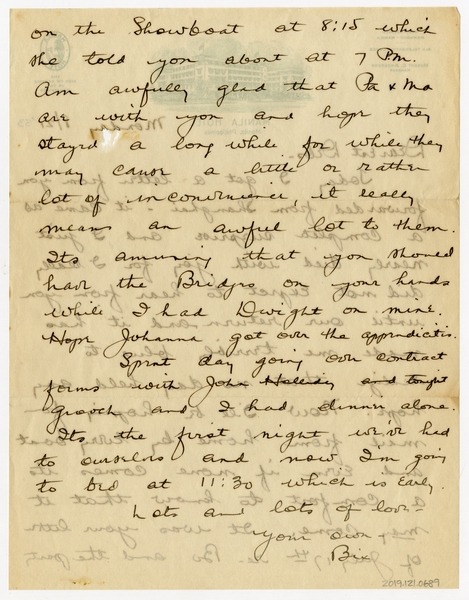 on the Showboat at 8:15 which
she told you about at 7 P.M.
Am awfully glad that Pa & Ma
are with you and hope they
stayed a long while for while they
may cause a little or rather
lot of inconvenience, it really
means an awful lot to them.
Its amusing that you should
have the Bridges on your hands
while I had Dwight on mine.
Hope Johanna got over the appendictis.
Spent day going over contract
forms with John Halliday and tonight
Grooch and I had dinner alone.
Its the first night we've had
to ourselves and now I'm going
to bed at 11:30 which is early.
Lots and lots of love –
Your own,
Bix
2019.121.0689